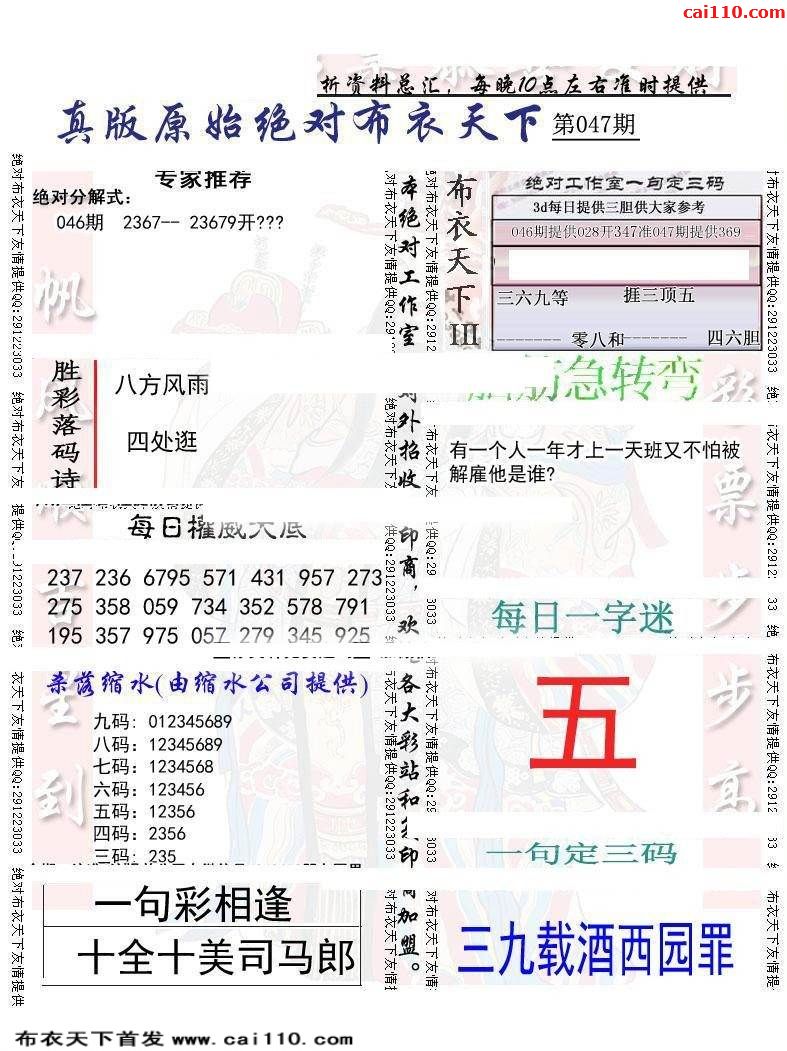 cai110.com
析资料总汇，每晚10点左右准时提供
真版原始绝对布衣天下 第047期
专家推荐
绝对分解式：
046期 2367-- 23679开???
布衣天下III
绝对工作室一句定三码
3d每日提供三胆供大家参考
046期提供028开347准047期提供369
三六九等 捱三顶五
------- 零八和------- 四六胆
胜彩落码诗
八方风雨
四处逛
急转弯
有一个人一年才上一天班又不怕被
解雇他是谁?
每日权威大底
237 236 6795 571 431 957 273
275 358 059 734 352 578 791
195 357 975 057 279 345 925
每日一字迷
五
杀落缩水(由缩水公司提供)
九码: 012345689
八码: 12345689
七码: 1234568
六码: 123456
五码: 12356
四码: 2356
三码: 235
一句定三码
三九载酒西园罪
一句彩相逢
十全十美司马郎
本绝对工作室
外招收
印商，欢
各大彩站和
印
商加盟。
绝对布衣天下友情提供QQ:291223033
帆
风
顺
吉
星
到
彩
票
步
步
高
布衣天下首发 www.cai110.com